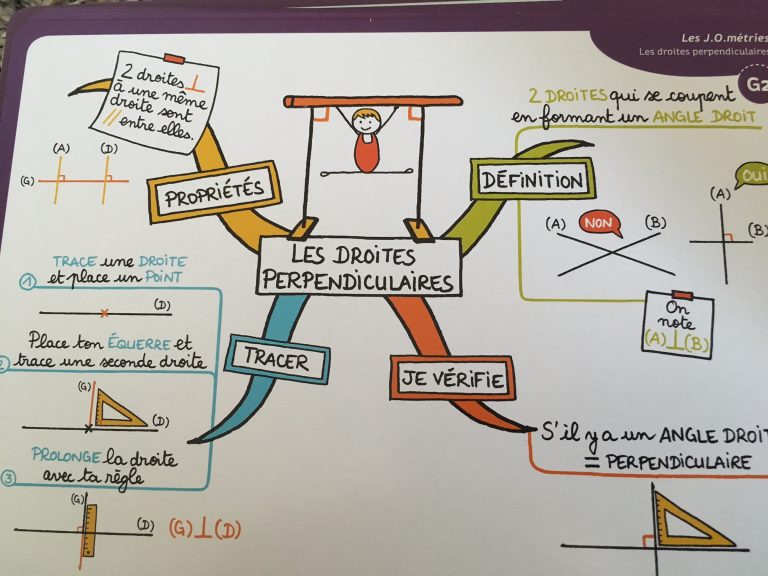 Les J.O.métries
Les droites perpendiculaires
G2
2 droites ⊥
à une même
droite sont
// entre elles.
(A) (D)
(G)
PROPRIÉTÉS
2 DROITES qui se coupent
en formant un ANGLE DROIT
DÉFINITION
(A) NON (B)
OUI
(A)
(B)
On
note
(A)⊥(B)
LES DROITES
PERPENDICULAIRES
TRACER
1 TRACE une DROITE
et place un POINT
(D)
2 Place ton ÉQUERRE et
trace une seconde droite
(G)
(D)
3 PROLONGE la droite
avec ta règle
(G)
(D)
(G)⊥(D)
JE VÉRIFIE
S'il y a un ANGLE DROIT
= PERPENDICULAIRE